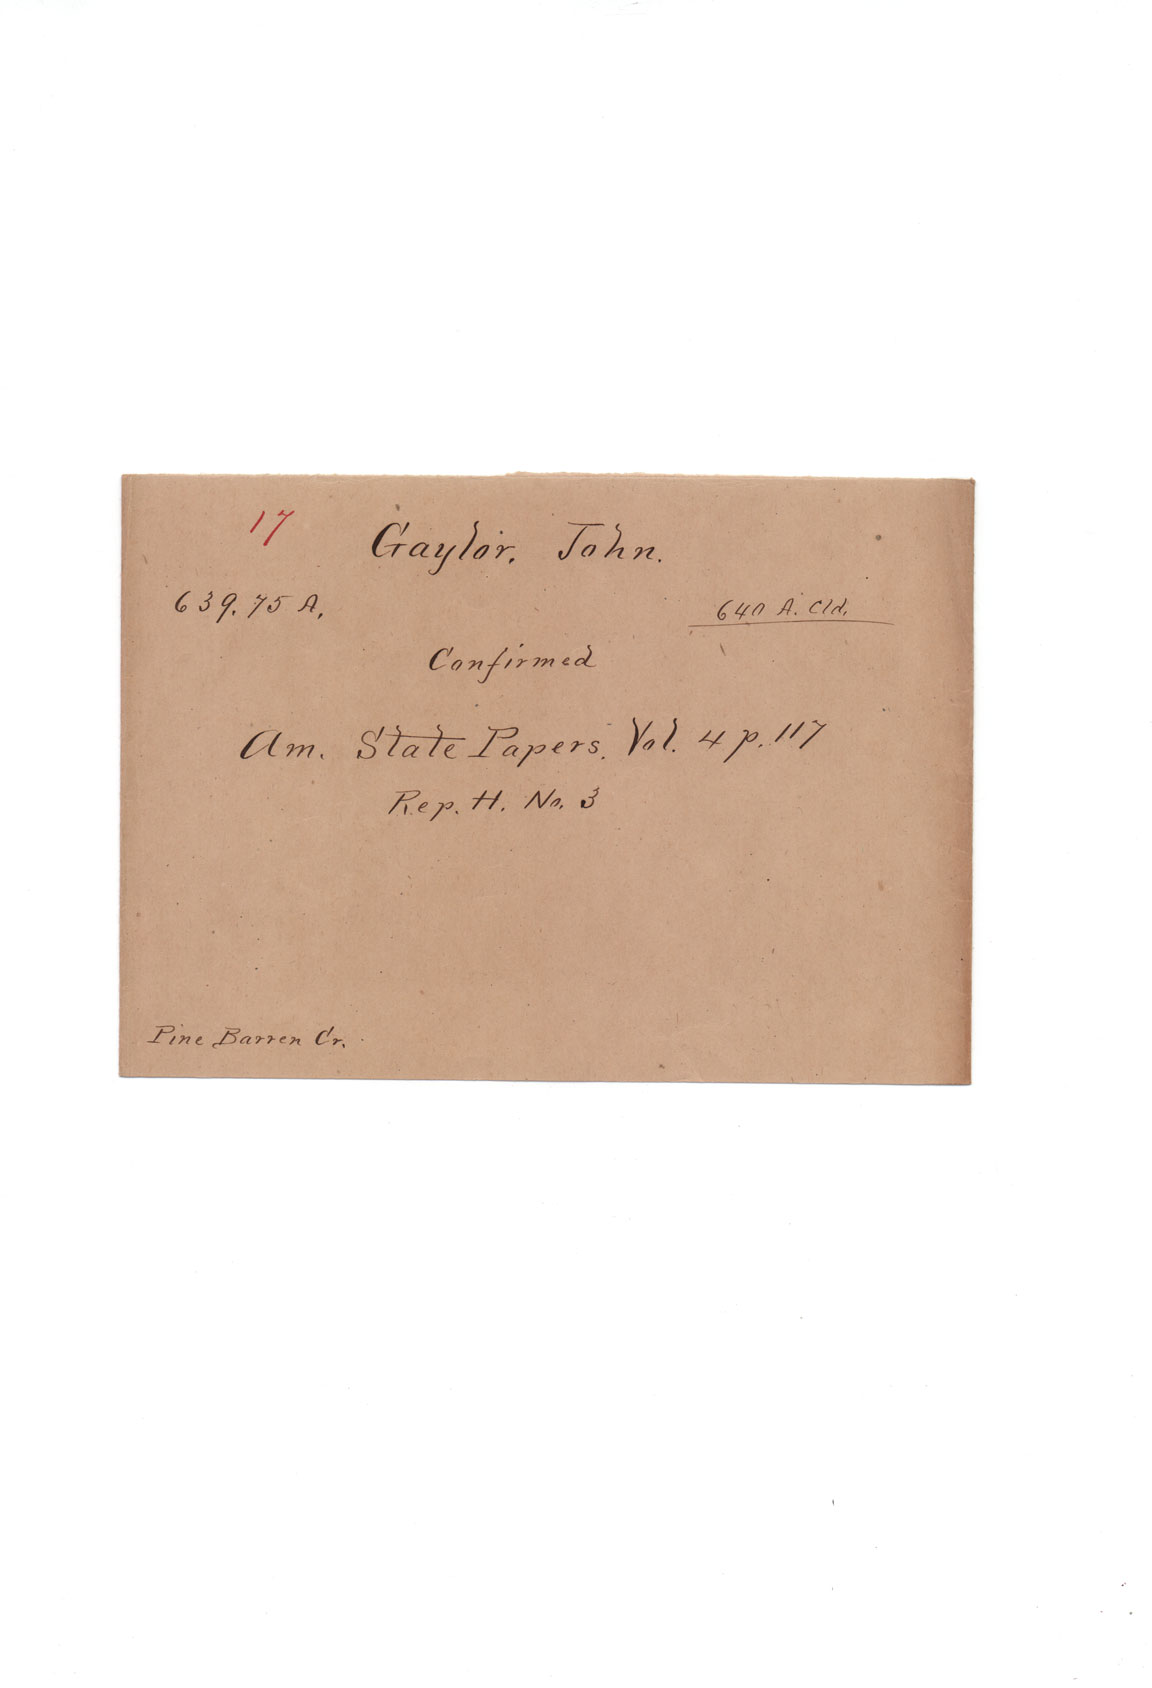 17 Gaylor, John.
639.75 A. 640 A. Cld.
Confirmed
Am. State Papers. Vol. 4 p. 117
Rep. H. No. 3
Pine Barren Cr.